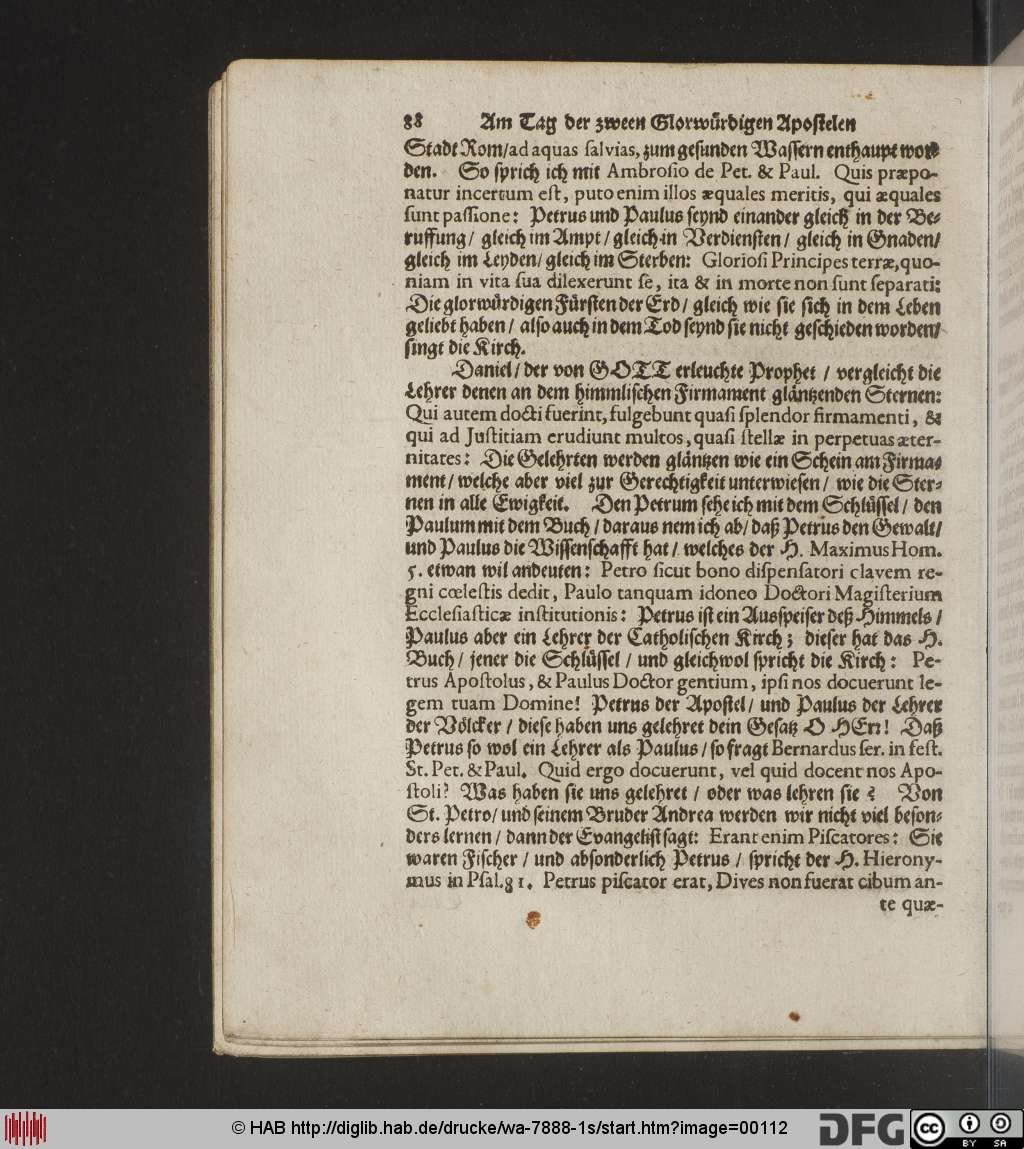 88 Am Tag der zween Glorwürdigen Apostelen
Stadt Rom/ad aquas ſalvias, zum gesunden Waſſern enthaupt wor-
den. So ſprich ich mit Ambroſio de Pet. & Paul. Quis præpo-
natur incertum eſt, puto enim illos æquales meritis, qui æquales
ſunt paſſione: Petrus und Paulus ſeynd einander gleich in der Be-
ruffung/ gleich im Ampt/ gleich in Verdienſten/ gleich in Gnaden/
gleich im Leyden/ gleich im Sterben: Glorioſi Principes terræ, quo-
niam in vita ſua dilexerunt ſe, ita & in morte non ſunt ſeparati:
Die glorwürdigen Fürſten der Erd/ gleich wie ſie ſich in dem Leben
geliebt haben/ alſo auch in dem Tod ſeynd ſie nicht geſchieden worden/
ſingt die Kirch.
Daniel/ der von GOTT erleuchte Prophet/ vergleicht die
Lehrer denen an dem himmliſchen Firmament gläntzenden Sternen:
Qui autem docti fuerint, fulgebunt quaſi ſplendor firmamenti, &
qui ad Juſtitiam erudiunt multos, quaſi ſtellæ in perpetuas æter-
nitates: Die Gelehrten werden gläntzen wie ein Schein am Firma-
ment/ welche aber viel zur Gerechtigkeit unterwieſen/ wie die Ster-
nen in alle Ewigkeit. Den Petrum ſehe ich mit dem Schlüſſel/ den
Paulum mit dem Buch/ daraus nem ich ab/ daß Petrus den Gewalt/
und Paulus die Wiſſenſchafft hat/ welches der H. Maximus Hom.
5. etwan wil andeuten: Petro ſicut bono diſpenſatori clavem re-
gni cœleſtis dedit, Paulo tanquam idoneo Doctori Magiſterium
Eccleſiaſticæ inſtitutionis: Petrus iſt ein Ausſpeiſer deß Himmels/
Paulus aber ein Lehrer der Catholiſchen Kirch; dieſer hat das H.
Buch/ jener die Schlüſſel/ und gleichwol ſpricht die Kirch: Pe-
trus Apoſtolus, & Paulus Doctor gentium, ipſi nos docuerunt le-
gem tuam Domine! Petrus der Apoſtel/ und Paulus der Lehrer
der Völcker/ dieſe haben uns gelehret dein Geſatz O HErr! Daß
Petrus ſo wol ein Lehrer als Paulus/ ſo fragt Bernardus ſer. in feſt.
St. Pet. & Paul. Quid ergo docuerunt, vel quid docent nos Apo-
ſtoli? Was haben ſie uns gelehret/ oder was lehren ſie? Von
St. Petro/ und ſeinem Bruder Andrea werden wir nicht viel beſon-
ders lernen/ dann der Evangeliſt ſagt: Erant enim Piſcatores: Sie
waren Fiſcher/ und abſonderlich Petrus/ ſpricht der H. Hierony-
mus in Pſal. 81. Petrus piſcator erat, Dives non fuerat cibum an-
te quæ-
© HAB http://diglib.hab.de/drucke/wa-7888-1s/start.htm?image=00112
DFG
cc BY SA